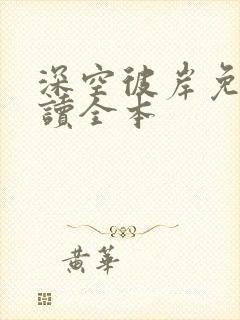 深空彼岸免
讀全本
黃華